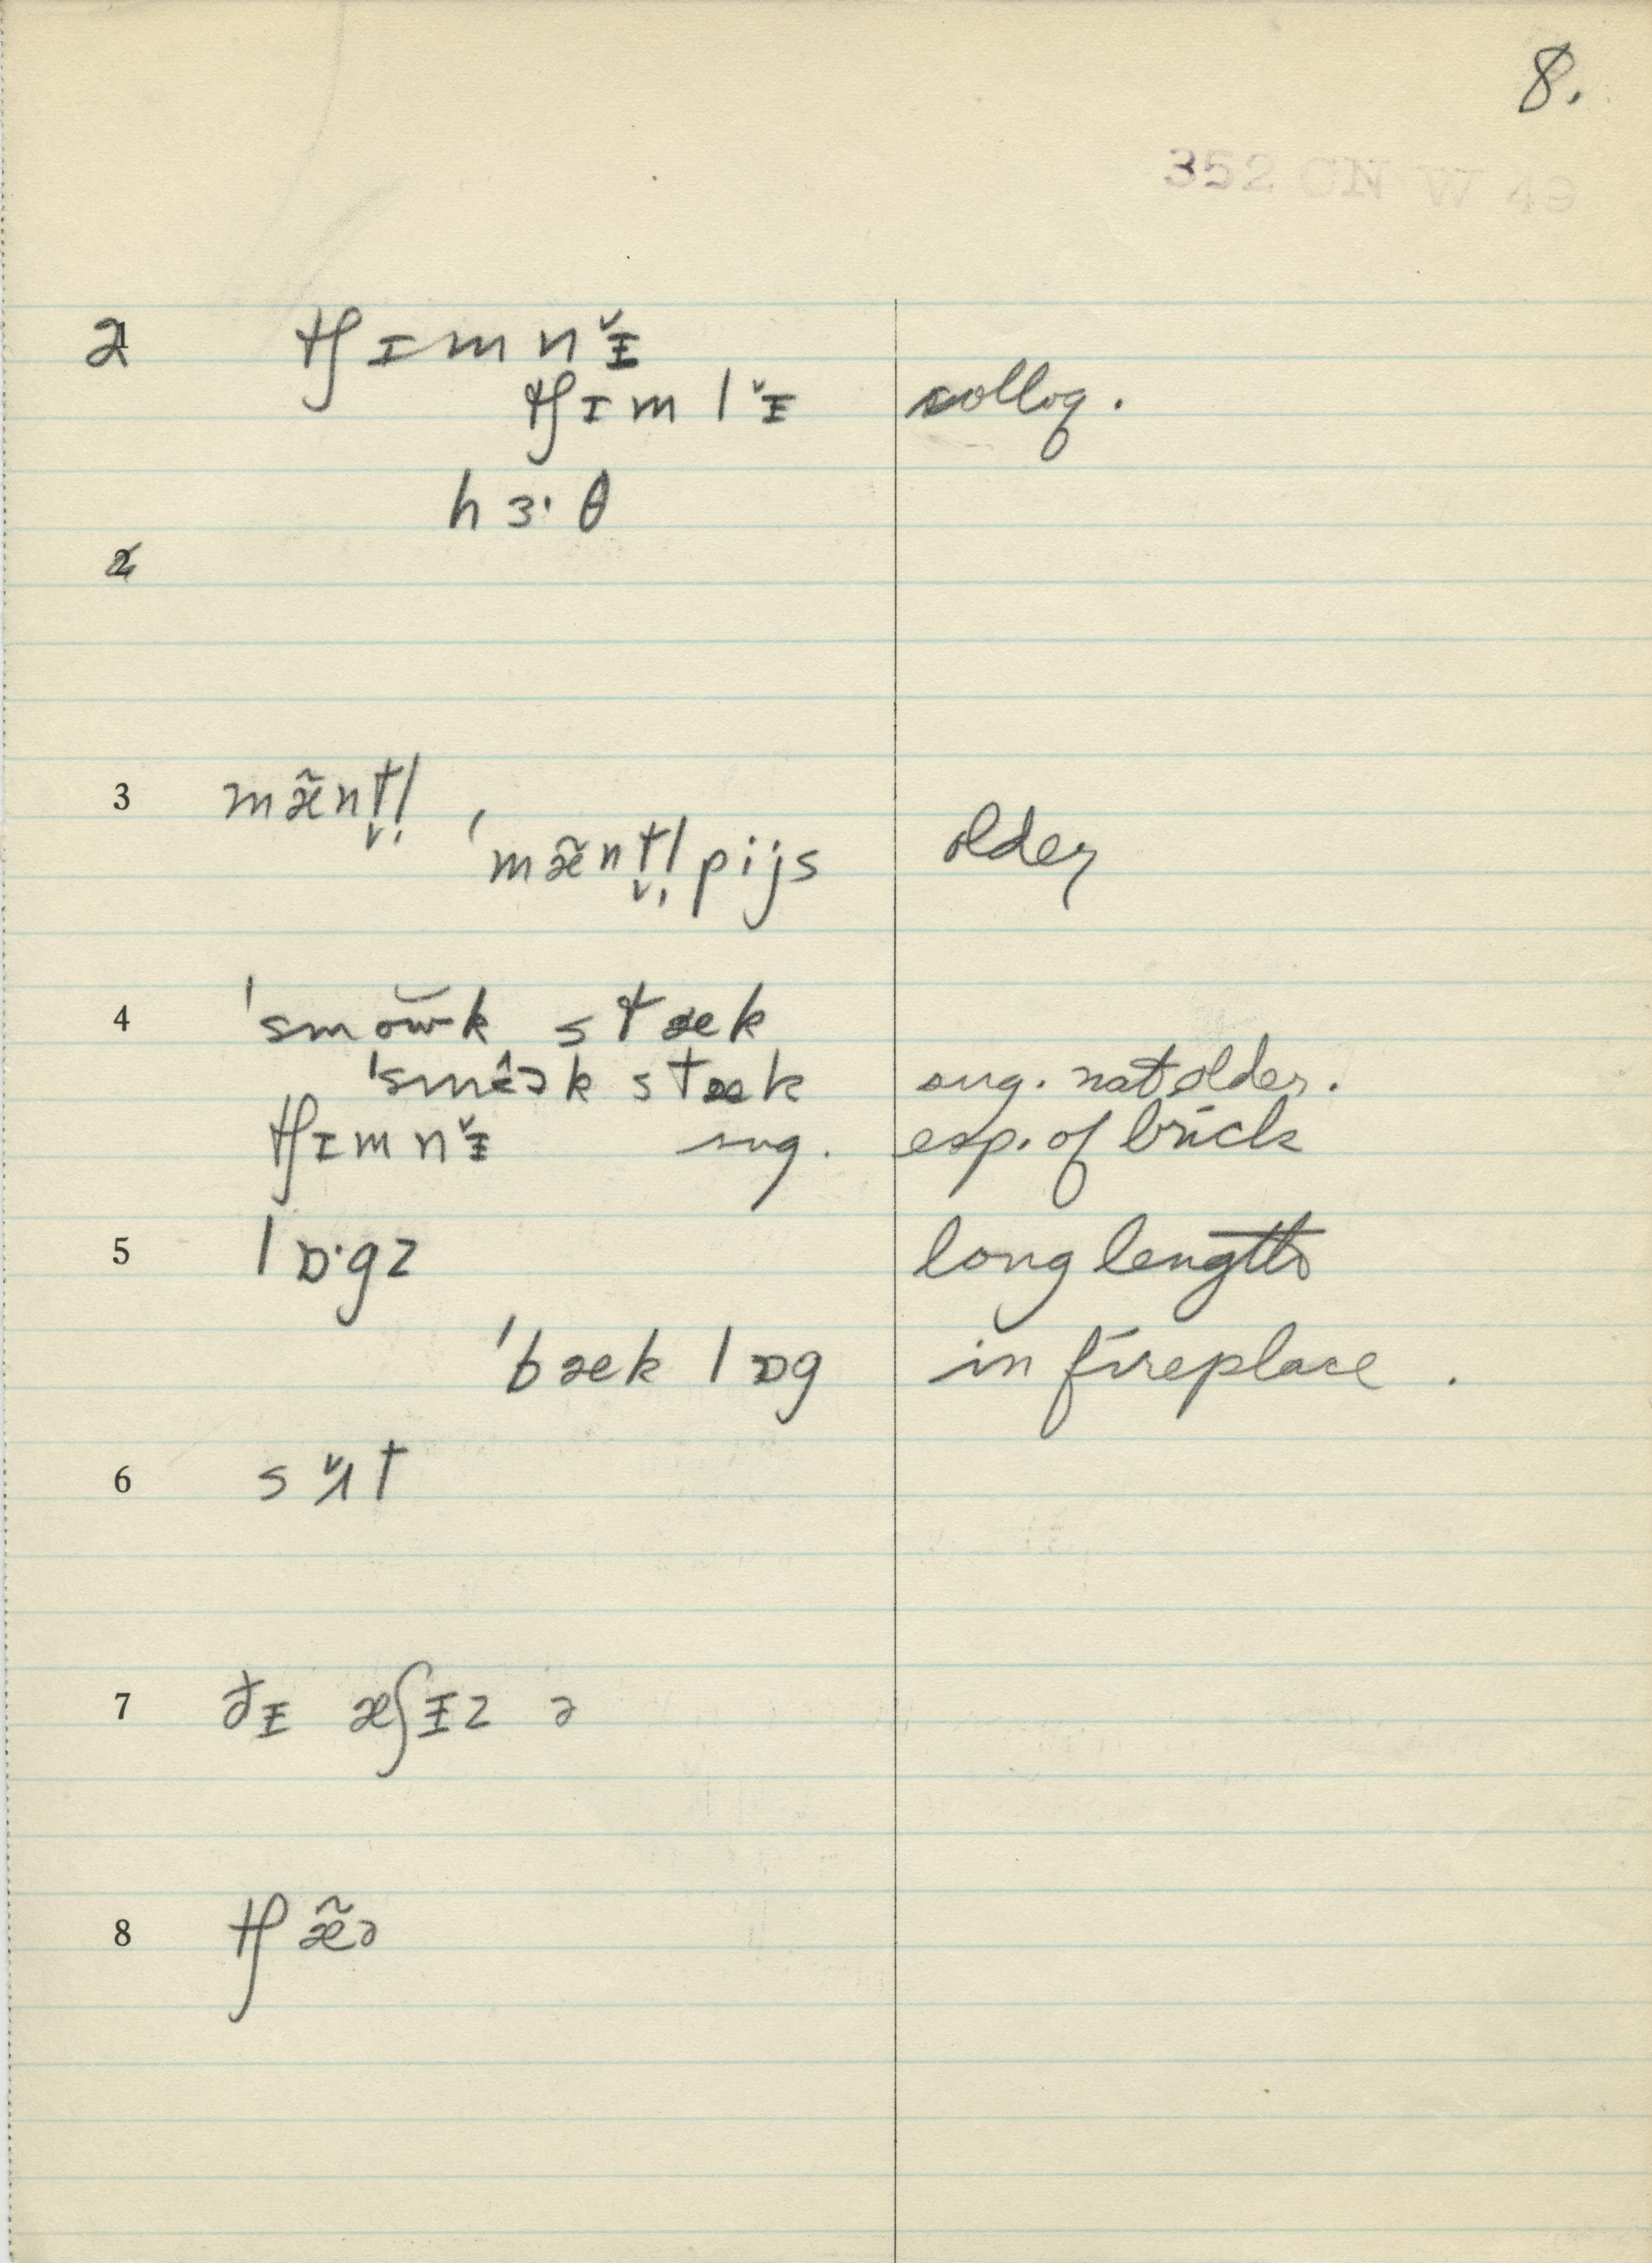 8.
352 CN W 49
2 tʃɪmnɪ̌
tʃɪmlɪ̌ colloq.
hɜ·θ
2
3 mæ̃nt̬l̩
ˈmæ̃nt̬l̩pijs older
4 ˈsmŏwk stæk
ˈsmɞ̂k stæk sug. not older.
tʃɪmnɪ̌ sug. esp. of brick
5 lɒ·gz long lengths
ˈbæk lɒg in fireplace .
6 sʌ̌t
7 ðɪ æʃɪz ə
8 tʃæ̃ə